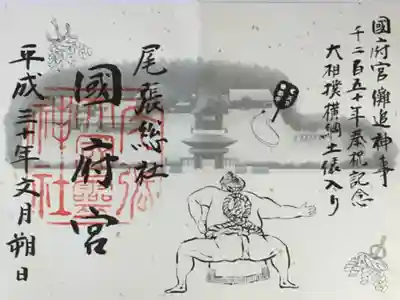 國府宮儺追神事
千二百五十年奉祝記念
大相撲横綱土俵入り
尾張総社
國府宮
平成三十年文月朔日